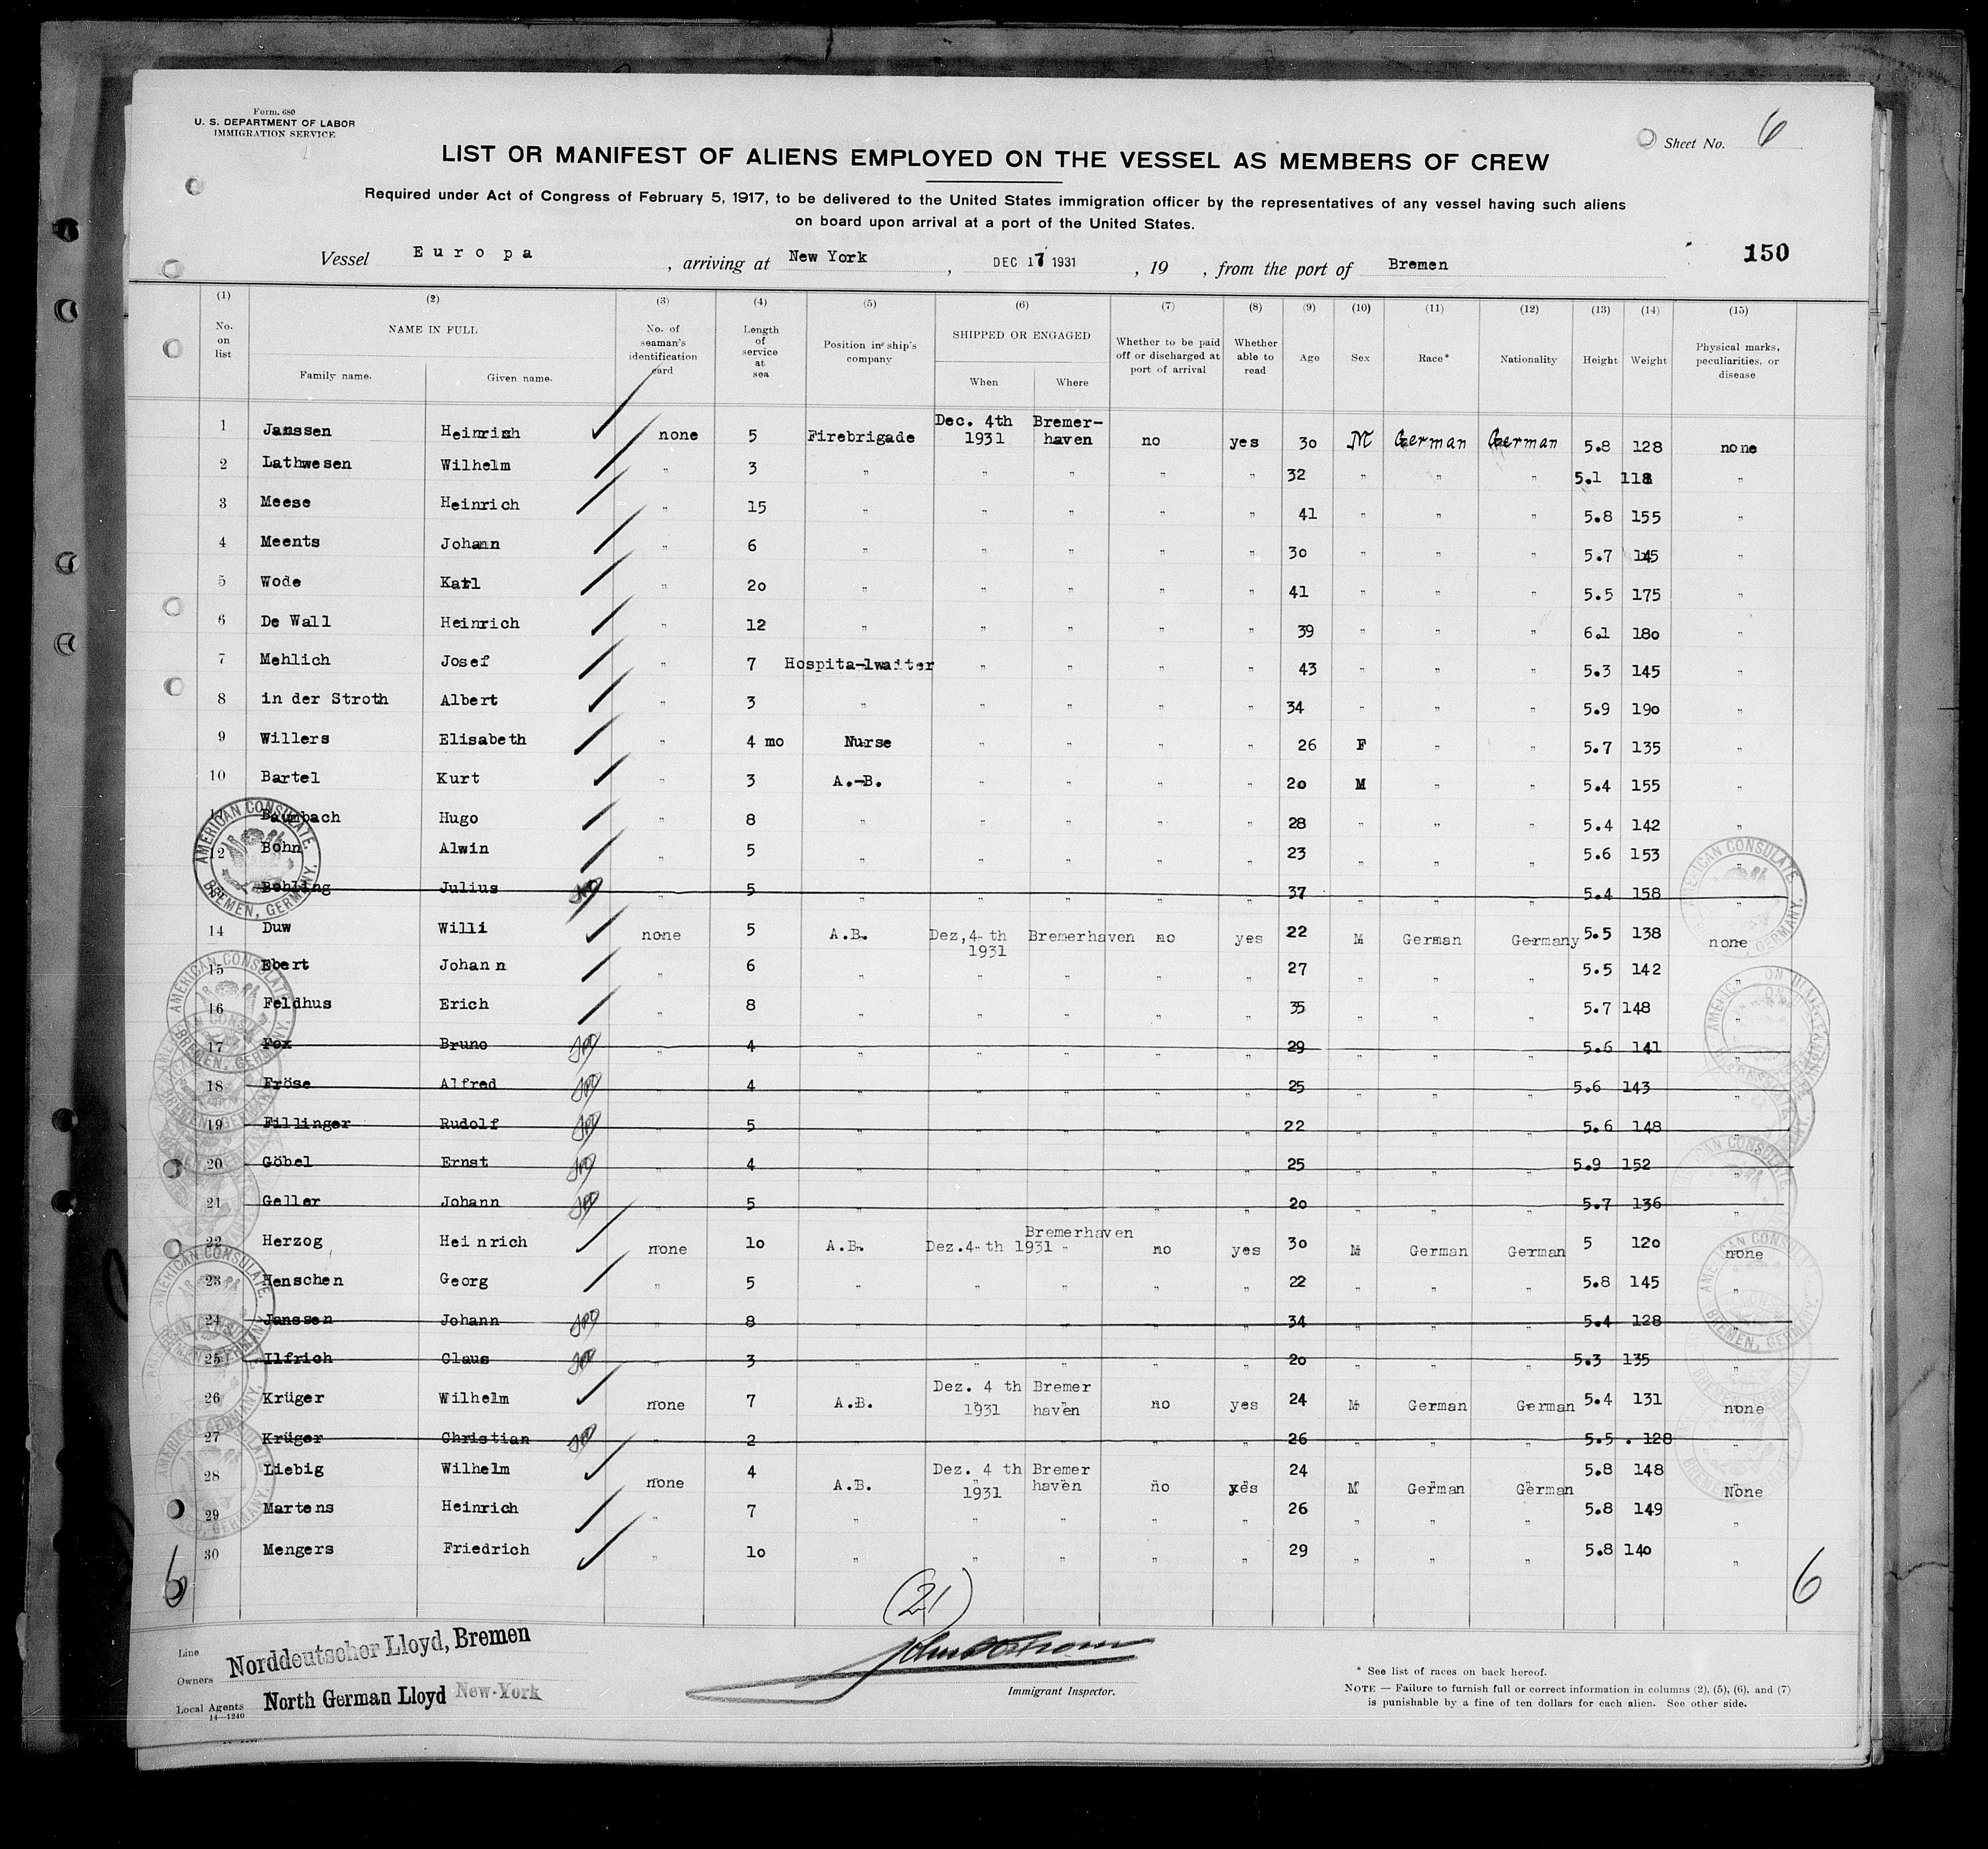 Form. 680
U. S. DEPARTMENT OF LABOR
IMMIGRATION SERVICE
Sheet No. 6
LIST OR MANIFEST OF ALIENS EMPLOYED ON THE VESSEL AS MEMBERS OF CREW
Required under Act of Congress of February 5, 1917, to be delivered to the United States immigration officer by the representatives of any vessel having such aliens
on board upon arrival at a port of the United States.
150
Vessel Europa , arriving at New York , DEC 17 1931 , 19 , from the port of Bremen
(1) (2) (3) (4) (5) (6) (7) (8) (9) (10) (11) (12) (13) (14) (15)
No. on list NAME IN FULL Family name. Given name. No. of seaman's identification card Length of service at sea Position in ship's company SHIPPED OR ENGAGED When Where Whether to be paid off or discharged at port of arrival Whether able to read Age Sex Race* Nationality Height Weight Physical marks, peculiarities, or disease
1 Janssen Heinrich none 5 Firebrigade Dec. 4th 1931 Bremer-haven no yes 30 M German German 5.8 128 none
2 Lathwesen Wilhelm " 3 " " " " " 32 " " " 5.1 118 "
3 Meese Heinrich " 15 " " " " " 41 " " " 5.8 155 "
4 Meents Johann " 6 " " " " " 30 " " " 5.7 145 "
5 Wode Karl " 20 " " " " " 41 " " " 5.5 175 "
6 De Wall Heinrich " 12 " " " " " 39 " " " 6.1 180 "
7 Mehlich Josef " 7 Hospita-lwaiter " " " " 43 " " " 5.3 145 "
8 in der Stroth Albert " 3 " " " " " 34 " " " 5.9 190 "
9 Willers Elisabeth " 4 mo Nurse " " " " 26 F " " 5.7 135 "
10 Bartel Kurt " 3 A.-B. " " " " 20 M " " 5.4 155 "
11 Baumbach Hugo " 8 " " " " " 28 " " " 5.4 142 "
12 Bohn Alwin " 5 " " " " " 23 " " " 5.6 153 "
Behling Julius " 5 " " " " " 37 " " " 5.4 158 "
14 Duw Willi none 5 A.B. Dez,4 th 1931 Bremerhaven no yes 22 M German Germany 5.5 138 none
15 Ebert Johann " 6 " " " " " 27 " " " 5.5 142 "
16 Feldhus Erich " 8 " " " " " 35 " " " 5.7 148 "
17 Fox Bruno " 4 " " " " " 29 " " " 5.6 141 "
18 Fröse Alfred " 4 " " " " " 25 " " " 5.6 143 "
19 Fillinger Rudolf " 5 " " " " " 22 " " " 5.6 148 "
20 Göbel Ernst " 4 " " " " " 25 " " " 5.9 152 "
21 Geller Johann " 5 " " " " " 20 " " " 5.7 136 "
22 Herzog Heinrich none 10 A.B. Dez.4 th 1931 Bremerhaven " no yes 30 M German German 5 120 none
23 Henschen Georg " 5 " " " " " 22 " " " 5.8 145 "
24 Janssen Johann " 8 " " " " " 34 " " " 5.4 128 "
25 Ilfrich Claus " 3 " " " " " 20 " " " 5.3 135 "
26 Krüger Wilhelm none 7 A.B. Dez. 4 th 1931 Bremer haven no yes 24 M German German 5.4 131 none
27 Krüger Christian " 2 " " " " " 26 " " " 5.5 . 128 "
28 Liebig Wilhelm none 4 A.B. Dez. 4 th 1931 Bremer haven no yes 24 M German German 5.8 148 None
29 Martens Heinrich " 7 " " " " " 26 " " " 5.8 149 "
30 Mengers Friedrich " 10 " " " " " 29 " " " 5.8 140 "
AMERICAN CONSULATE. BREMEN, GERMANY.
6 (21) 6
Line
Owners Norddeutscher Lloyd, Bremen
Local Agents North German Lloyd New-York
14—1240
Immigrant Inspector.
* See list of races on back hereof.
NOTE — Failure to furnish full or correct information in columns (2), (5), (6), and (7)
is punishable by a fine of ten dollars for each alien. See other side.